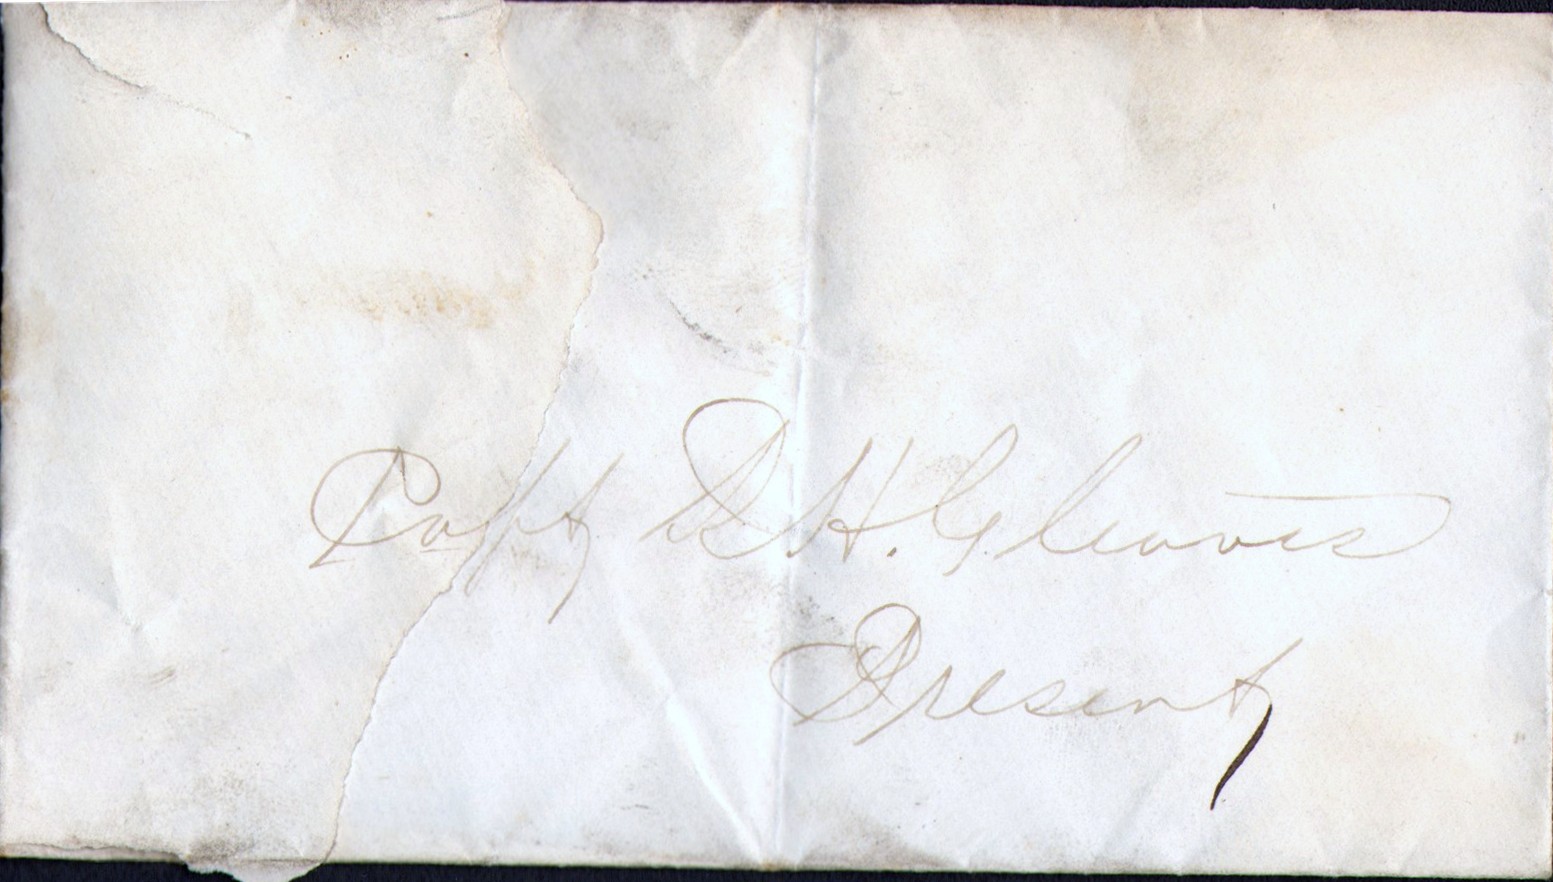 Capt D. H. Cleaves
Present